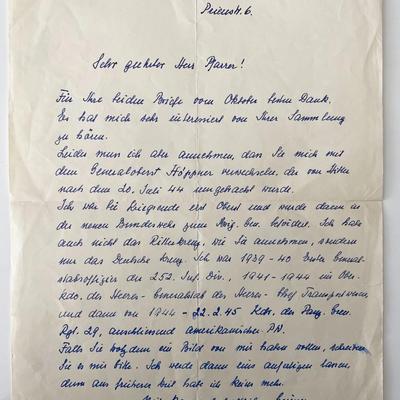 Sehr geehrter Herr Pfarrer!
Für Ihre beiden Briefe vom Oktober besten Dank.
Es hat mich sehr interessiert von Ihrer Sammlung
zu hören.
Leider muss ich aber annehmen, dass Sie mich mit
dem Generaloberst Höppner verwechseln, der von Hitler
nach dem 20. Juli 44 umgebracht wurde.
Ich war bei Kriegsende erst Oberst und wurde dann in
der neuen Bundeswehr zum Brig. Gen. befördert. Ich habe
auch nicht das Ritterkreuz, wie Sie annehmen, sondern
nur das Deutsche Kreuz. Ich war 1939-40 Erster General-
stabsoffizier der 252. Inf. Div., 1941-1944 im Ober-
kdo. des Heeres - Generalstab des Heeres - Chef Transportwesen
und dann von 1944 - 22.2.45 Kdr. des Pz. Gren.
Rgt. 29, anschliessend amerikanischer
Falls Sie trotzdem ein Bild von mir haben wollen, schreiben
Sie es mir bitte. Ich werde dann eins anfertigen lassen,
denn aus früherer Zeit habe ich keins mehr.